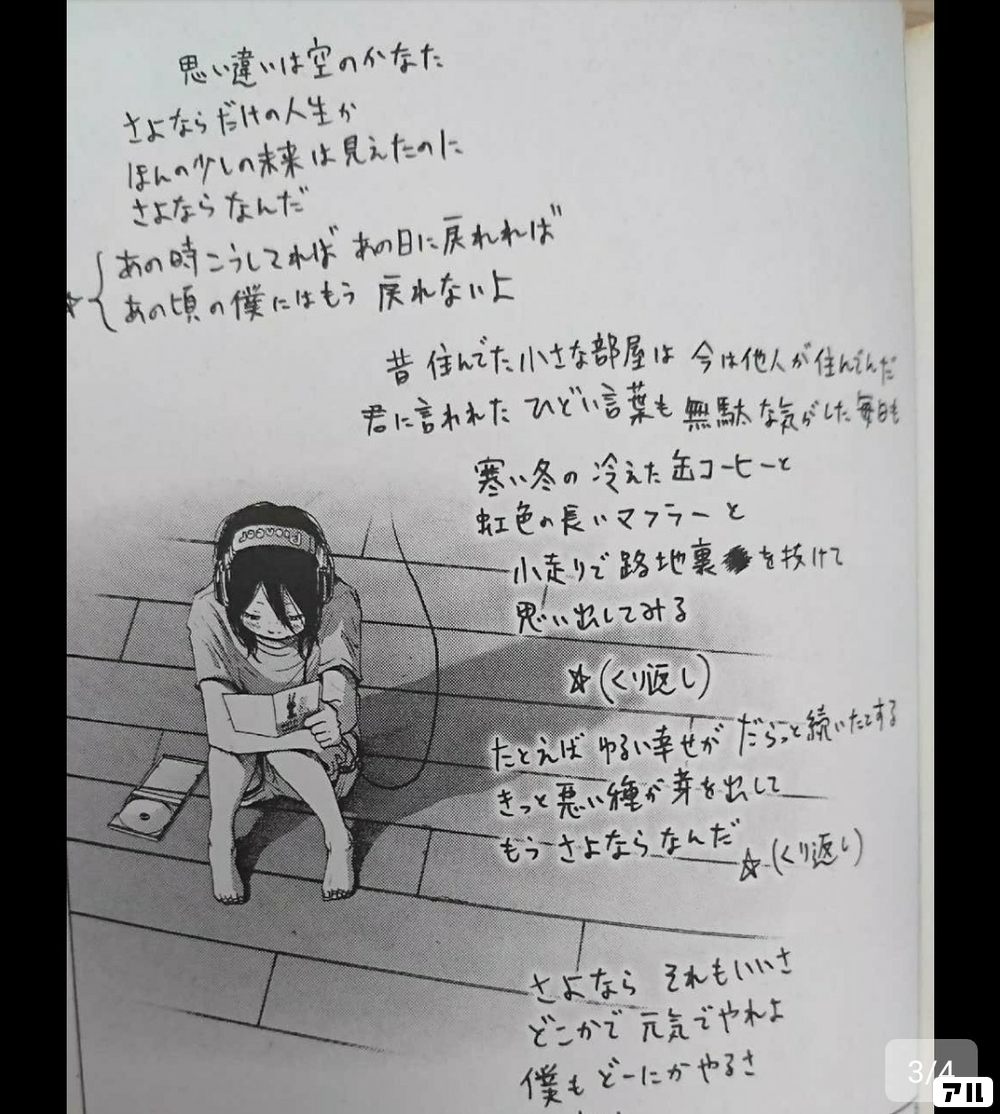 思い違いは空のかなた
さよならだけの人生か
ほんの少しの未来は見えたのに
さよならなんだ
あの時こうしてれば あの日に戻れれば
☆ あの頃の僕にはもう 戻れないよ
昔 住んでた小さな部屋は 今は他人が住んでんだ
君に言われた ひどい言葉も 無駄な気がした毎日も
寒い冬の 冷えた缶コーヒーと
虹色の長いマフラーと
小走りで路地裏を抜けて
思い出してみる
☆(くり返し)
たとえば ゆるい幸せが だらっと続いたとする
きっと悪い種が芽を出して
もう さよならなんだ
☆(くり返し)
さよなら それもいいさ
どこかで 元気でやれよ
僕も どーにかやるさ
3/4
アル